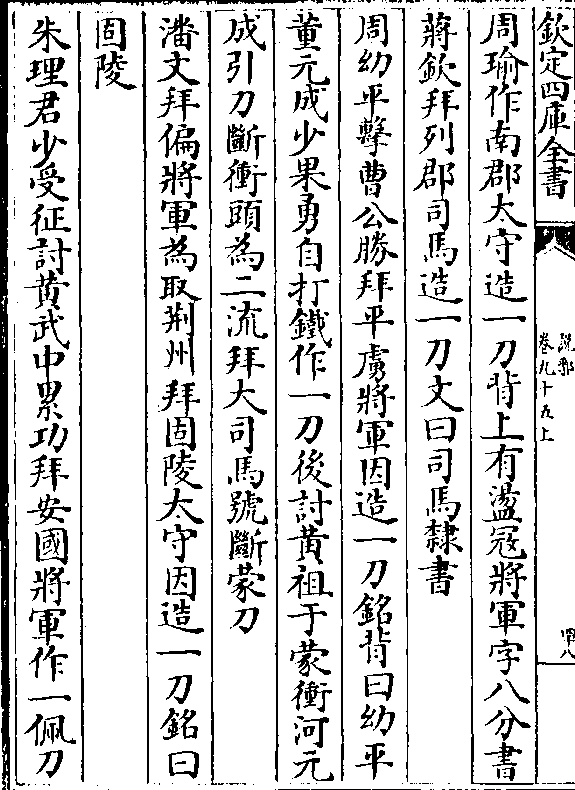 欽定四庫全書
說郛
卷九十五上
四八
周瑜作南郡太守造一刀背上有盪冦將軍字八分書
蔣欽拜列郡司馬造一刀文曰司馬隸書
周幼平擊曹公勝拜平虜將軍因造一刀銘背曰幼平
董元成少果勇自打鐵作一刀後討黄祖于蒙衝河元
成引刀斷衝頭為二流拜大司馬號斷蒙刀
潘文拜偏將軍為取荆州拜固陵太守因造一刀銘曰
固陵
朱理君少受征討黄武中累功拜安國將軍作一佩刀